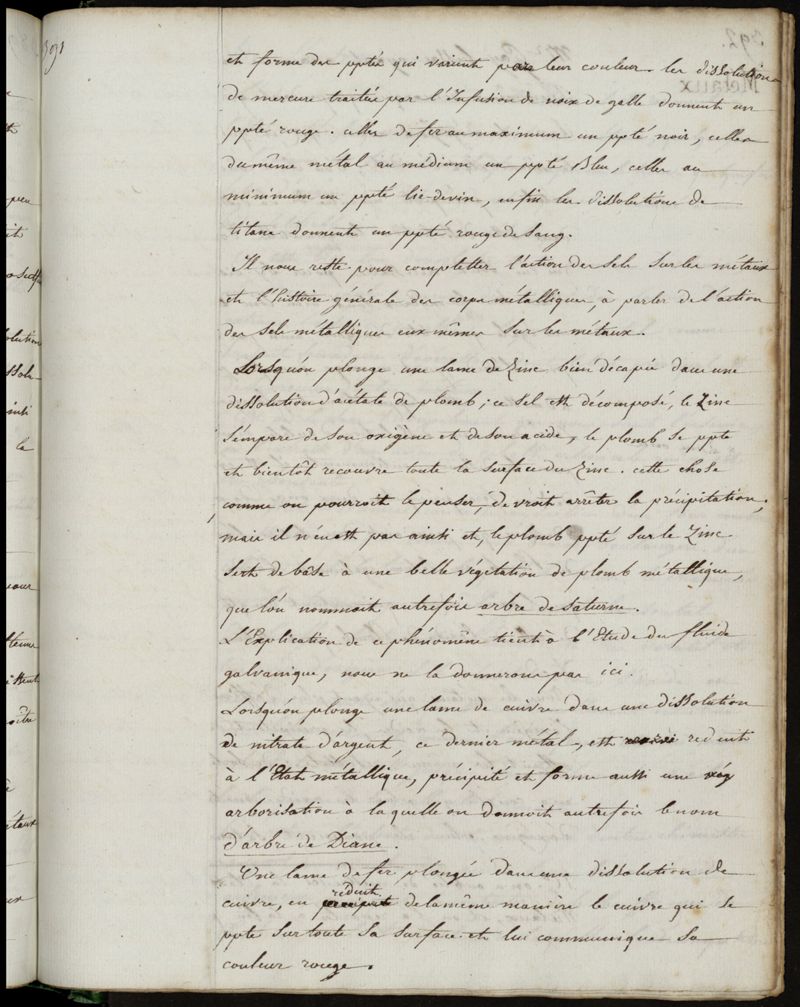 391
et forme des pptés qui varient par leur couleur. les dissolutions
de mercure traitées par l'Infusion de noix de galle donnent un
ppté rouge. celles de fer au maximum un ppté noir, celles
du même métal au médium un ppté Bleu, celles au
minimum un ppté lie-de-vin, enfin les dissolutions de
titane donnent un ppté rouge de sang.
Il nous reste pour completter l'action des sels sur les métaux
et l'histoire générale des corps métalliques, à parler de l'action
des sels métalliques eux mêmes sur les métaux.
Lorsqu'on plonge une lame de Zinc bien décapée dans une
dissolution d'acétate de plomb; ce sel est décomposé, le Zinc
s'empare de son oxigène et de son acide, le plomb se ppte
et bientôt recouvre toute la surface du Zinc. cette chose
comme on pourroit le penser, devroit arrêter la précipitation,
mais il n'en est pas ainsi et, le plomb ppté sur le Zinc
sert de bâse à une belle végétation de plomb métallique,
que l'on nommoit autrefois arbre de saturne.
L'Explication de ce phénomène tient à l'Etude du fluide
galvanique, nous ne la donnerons pas ici.
Lorsqu'on plonge une lame de cuivre dans une dissolution
de nitrate d'argent, ce dernier métal, est reduit
à l'Etat métallique, précipité et forme aussi une
arborisation à laquelle on donnoit autrefois le nom
d'arbre de Diane.
Une lame de fer plongée dans une dissolution de
cuivre, en reduit de la même manière le cuivre qui se
ppte sur toute sa surface et lui communique sa
couleur rouge.